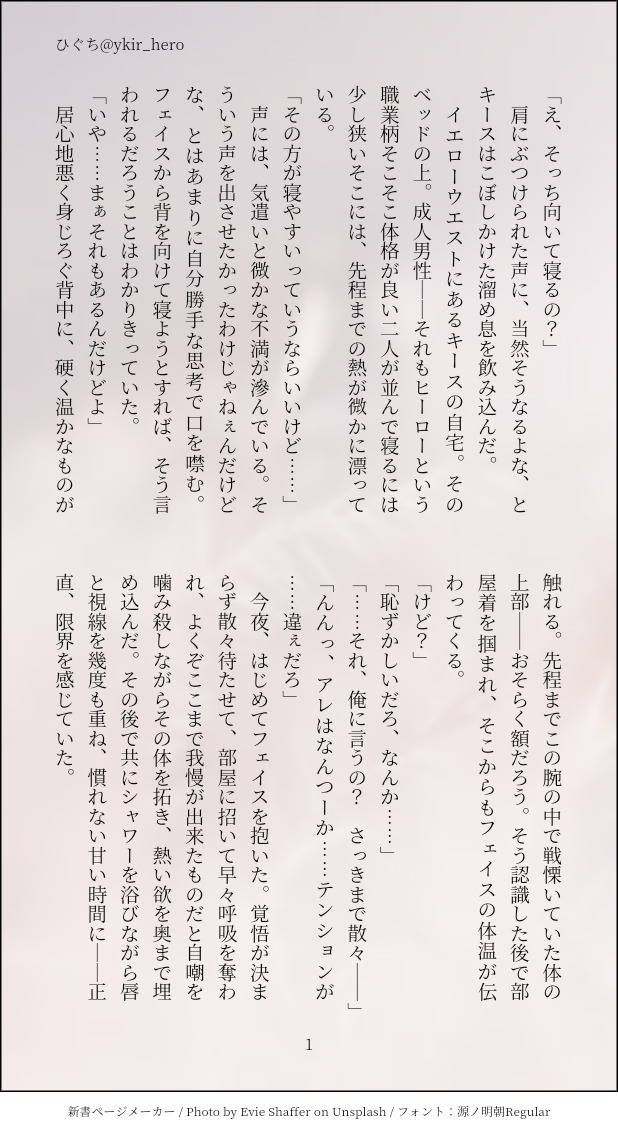 ひぐち@ykir_hero
「え、そっち向いて寝るの？」
　肩にぶつけられた声に、当然そうなるよな、と
キースはこぼしかけた溜め息を飲み込んだ。
　イエローウエストにあるキースの自宅。その
ベッドの上。成人男性――それもヒーローという
職業柄そこそこ体格が良い二人が並んで寝るには
少し狭いそこには、先程までの熱が微かに漂って
いる。
「その方が寝やすいっていうならいいけど……」
　声には、気遣いと微かな不満が滲んでいる。そ
ういう声を出させたかったわけじゃねぇんだけど
な、とはあまりに自分勝手な思考で口を噤む。
フェイスから背を向けて寝ようとすれば、そう言
われるだろうことはわかりきっていた。
「いや……まぁそれもあるんだけどよ」
　居心地悪く身じろぐ背中に、硬く温かなものが
触れる。先程までこの腕の中で戦慄いていた体の
上部――おそらく額だろう。そう認識した後で部
屋着を掴まれ、そこからもフェイスの体温が伝
わってくる。
「けど？」
「恥ずかしいだろ、なんか……」
「……それ、俺に言うの？　さっきまで散々――」
「んんっ、アレはなんつーか……テンションが
……違ぇだろ」
　今夜、はじめてフェイスを抱いた。覚悟が決ま
らず散々待たせて、部屋に招いて早々呼吸を奪わ
れ、よくぞここまで我慢が出来たものだと自嘲を
噛み殺しながらその体を拓き、熱い欲を奥まで埋
め込んだ。その後で共にシャワーを浴びながら唇
と視線を幾度も重ね、慣れない甘い時間に――正
直、限界を感じていた。
1
新書ページメーカー / Photo by Evie Shaffer on Unsplash / フォント：源ノ明朝Regular